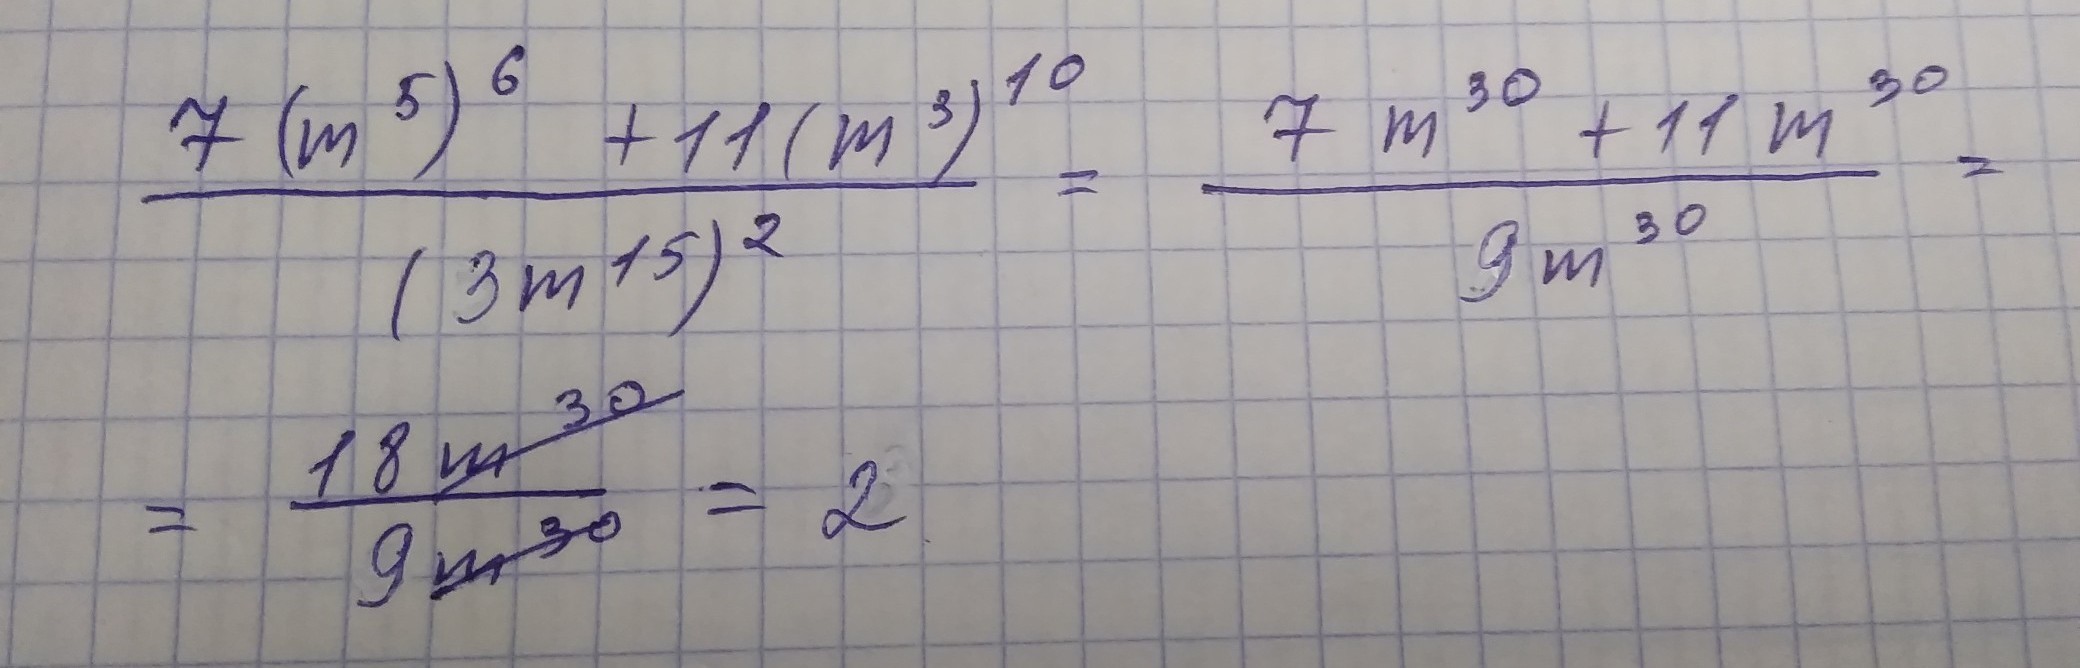 7(m^5)^6 + 11(m^3)^10 / (3m^15)^2 = 7m^30 + 11m^30 / 9m^30 =
= 18m^30 / 9m^30 = 2